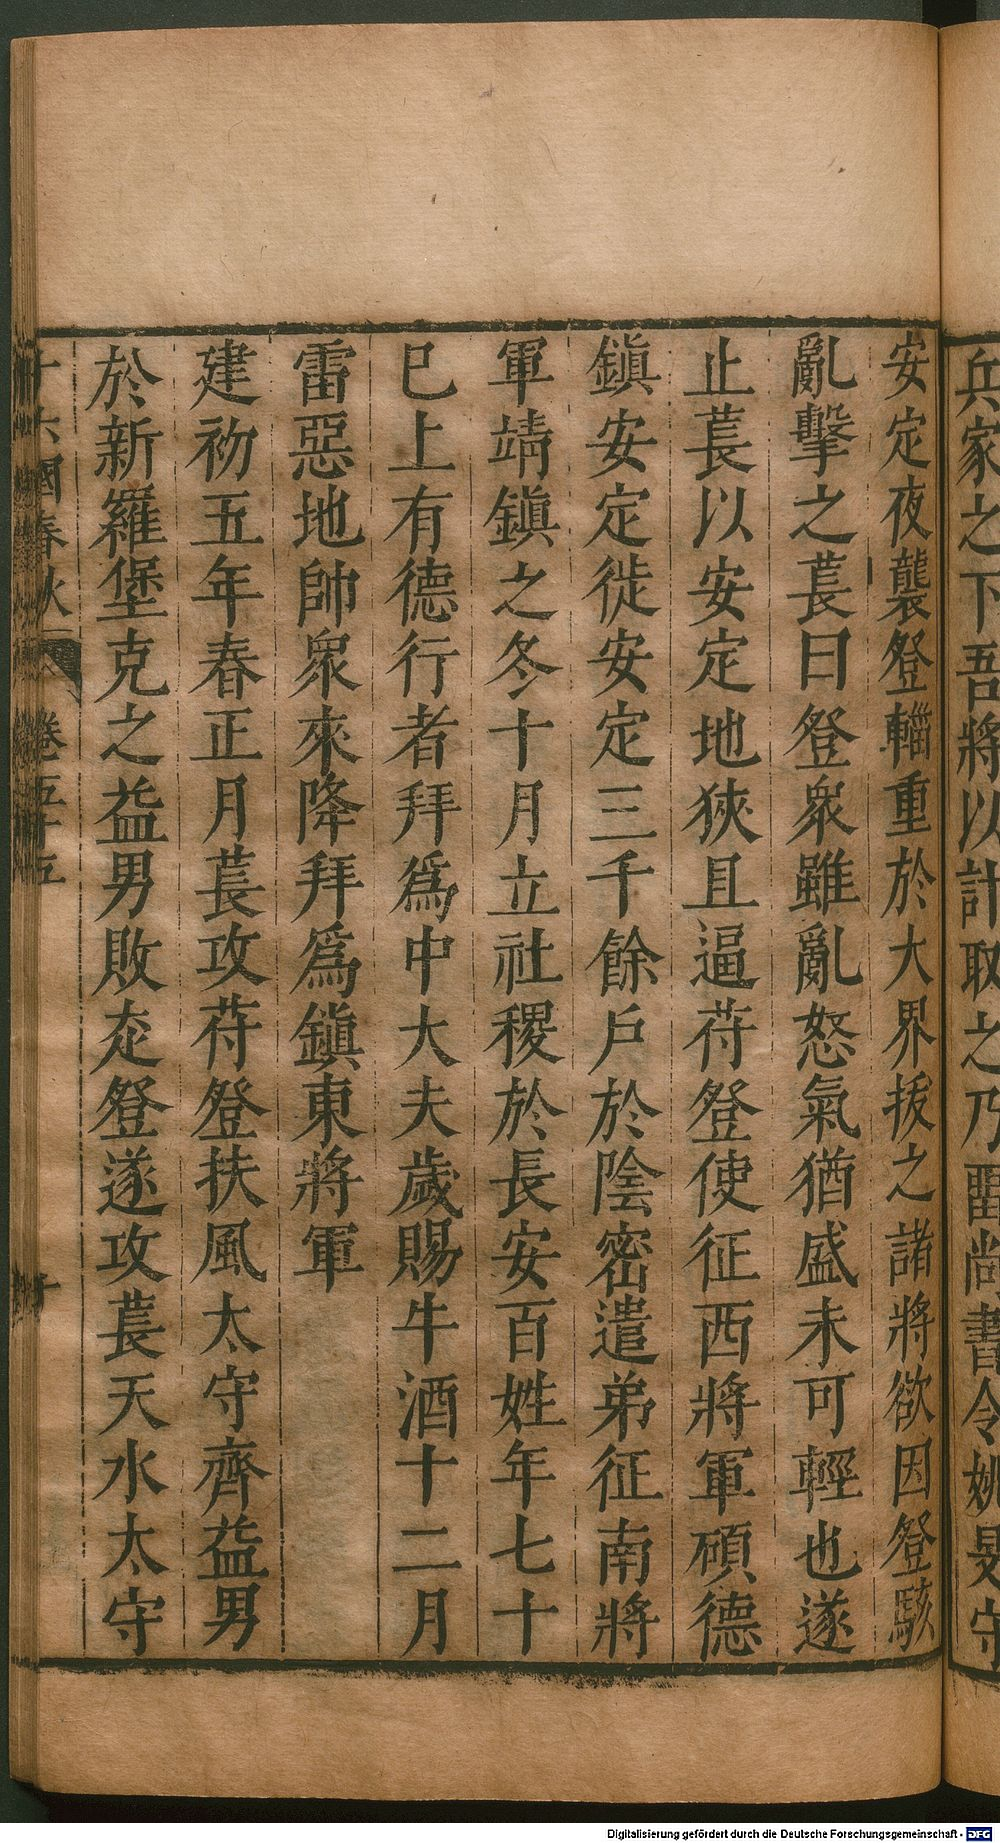 兵家之下吾將以計取之乃畱尚書令姚旻守
安定夜襲登輜重於大界拔之諸將欲因登駭
亂擊之萇曰登衆雖亂怒氣猶盛未可輕也遂
止萇以安定地狹且逼苻登使征西將軍碩德
鎮安定徙安定三千餘戶於陰密遣弟征南將
軍靖鎮之冬十月立社稷於長安百姓年七十
已上有德行者拜爲中大夫歲賜牛酒十二月
雷惡地帥衆來降拜爲鎮東將軍
建初五年春正月萇攻苻登扶風太守齊益男
於新羅堡克之益男敗走登遂攻萇天水太守
十六國春秋 卷五十五 十
Digitalisierung gefördert durch die Deutsche Forschungsgemeinschaft - DFG